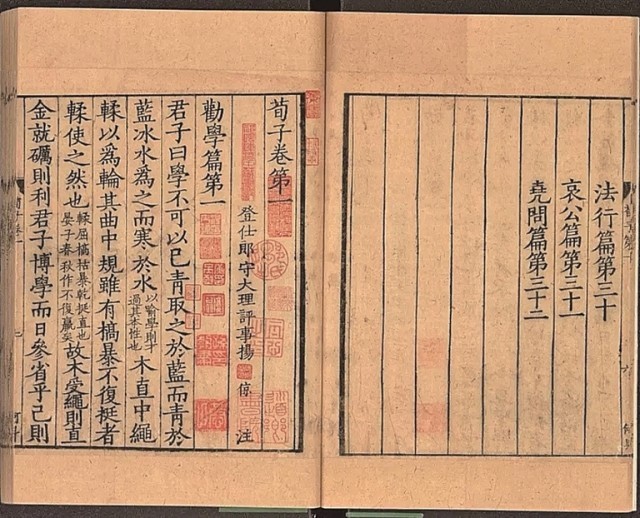 法行篇第三十
哀公篇第三十一
堯問篇第三十二
荀子卷第一
登仕郎守大理評事揚 倞 注
勸學篇第一
君子曰學不可以已青取之於藍而青於
藍冰水爲之而寒於水以喻學則才過其本性也木直中繩
輮以爲輪其曲中規雖有槁暴不復挺者
輮使之然也輮屈槁枯暴乾挺直也晏子春秋作不復贏矣故木受繩則直
金就礪則利君子博學而日參省乎己則